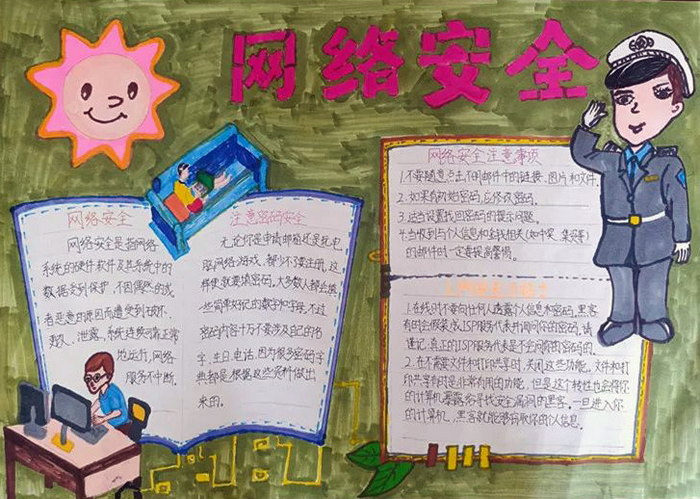 网络安全
网络安全
网络安全是指网络
系统的硬件软件及其系统中的
数据受到保护,不因偶然的或
者恶意的原因而遭受到破坏、
更改、泄露,系统连续可靠正常
地运行,网络
服务不中断.
注意密码安全
无论你是申请邮箱还是玩电
脑网络游戏,都少不了要注册,这
样便就要填密码。大多数人都会填
些简单好记的数字和字母,不过
密码内容千万不要涉及自己的名
字、生日、电话,因为很多密码字
典都是根据这些资料做出
来的。
网络安全注意事项
1.不要随意点击不明邮件中的链接、图片和文件.
2.如果有初始密码,应修改密码.
3.适当设置找回密码的提示问题.
4.当收到与个人信息和金钱相关(如中奖、集资等)
的邮件时一定要提高警惕。
1.在线时不要向任何人透露个人信息和密码。黑客
有时会假装成ISP服务代表并询问你的密码。请
谨记:真正的ISP服务代表是不会问你的密码的.
2.在不需要文件和打印共享时,关闭这些功能。文件和打
印共享有时是非常有用的功能,但是这个特性也会将你
的计算机暴露给寻找安全漏洞的黑客。一旦进入你
的计算机,黑客就能够窃取你的个人信息.